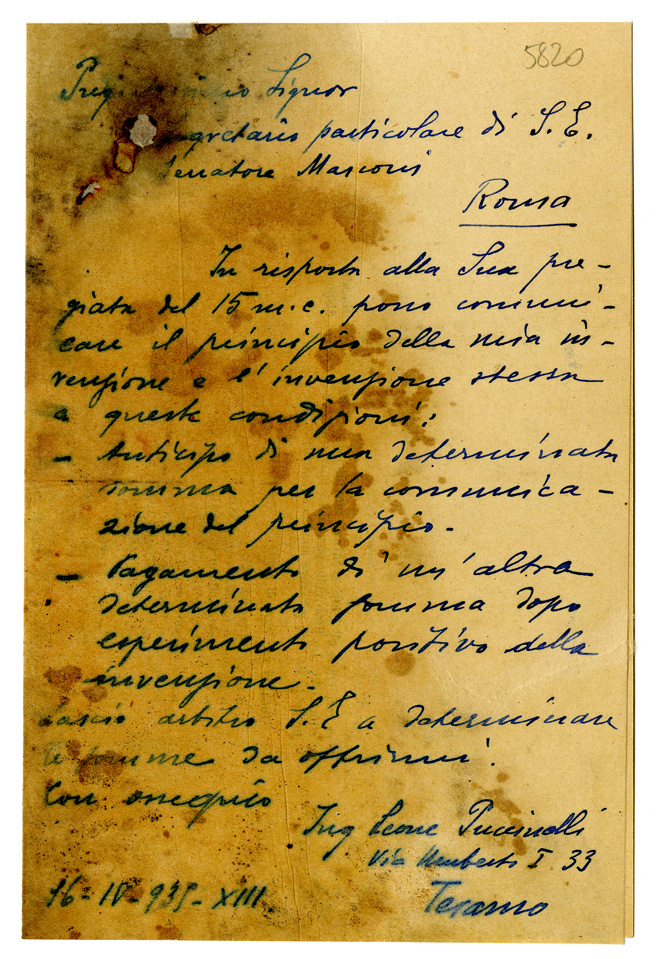 5820
Signor
Segretario particolare di S.E.
Senatore Marconi
Roma
In risposta alla Sua pre-
giata del 15 m.c. posso comuni-
care il principio della mia in-
venzione e l'invenzione stessa
a queste condizioni:
- Anticipo di una determinata
somma per la comunica-
zione del principio.-
- Pagamento di un'altra
determinata somma dopo
esperimento positivo della
invenzione.-
Lascio arbitro S.E a determinare
le somme da offrirmi.
Con ossequio
Ing Leone Puccinelli
Via Umberto I 33
Teramo
16-IV-935-XIII.